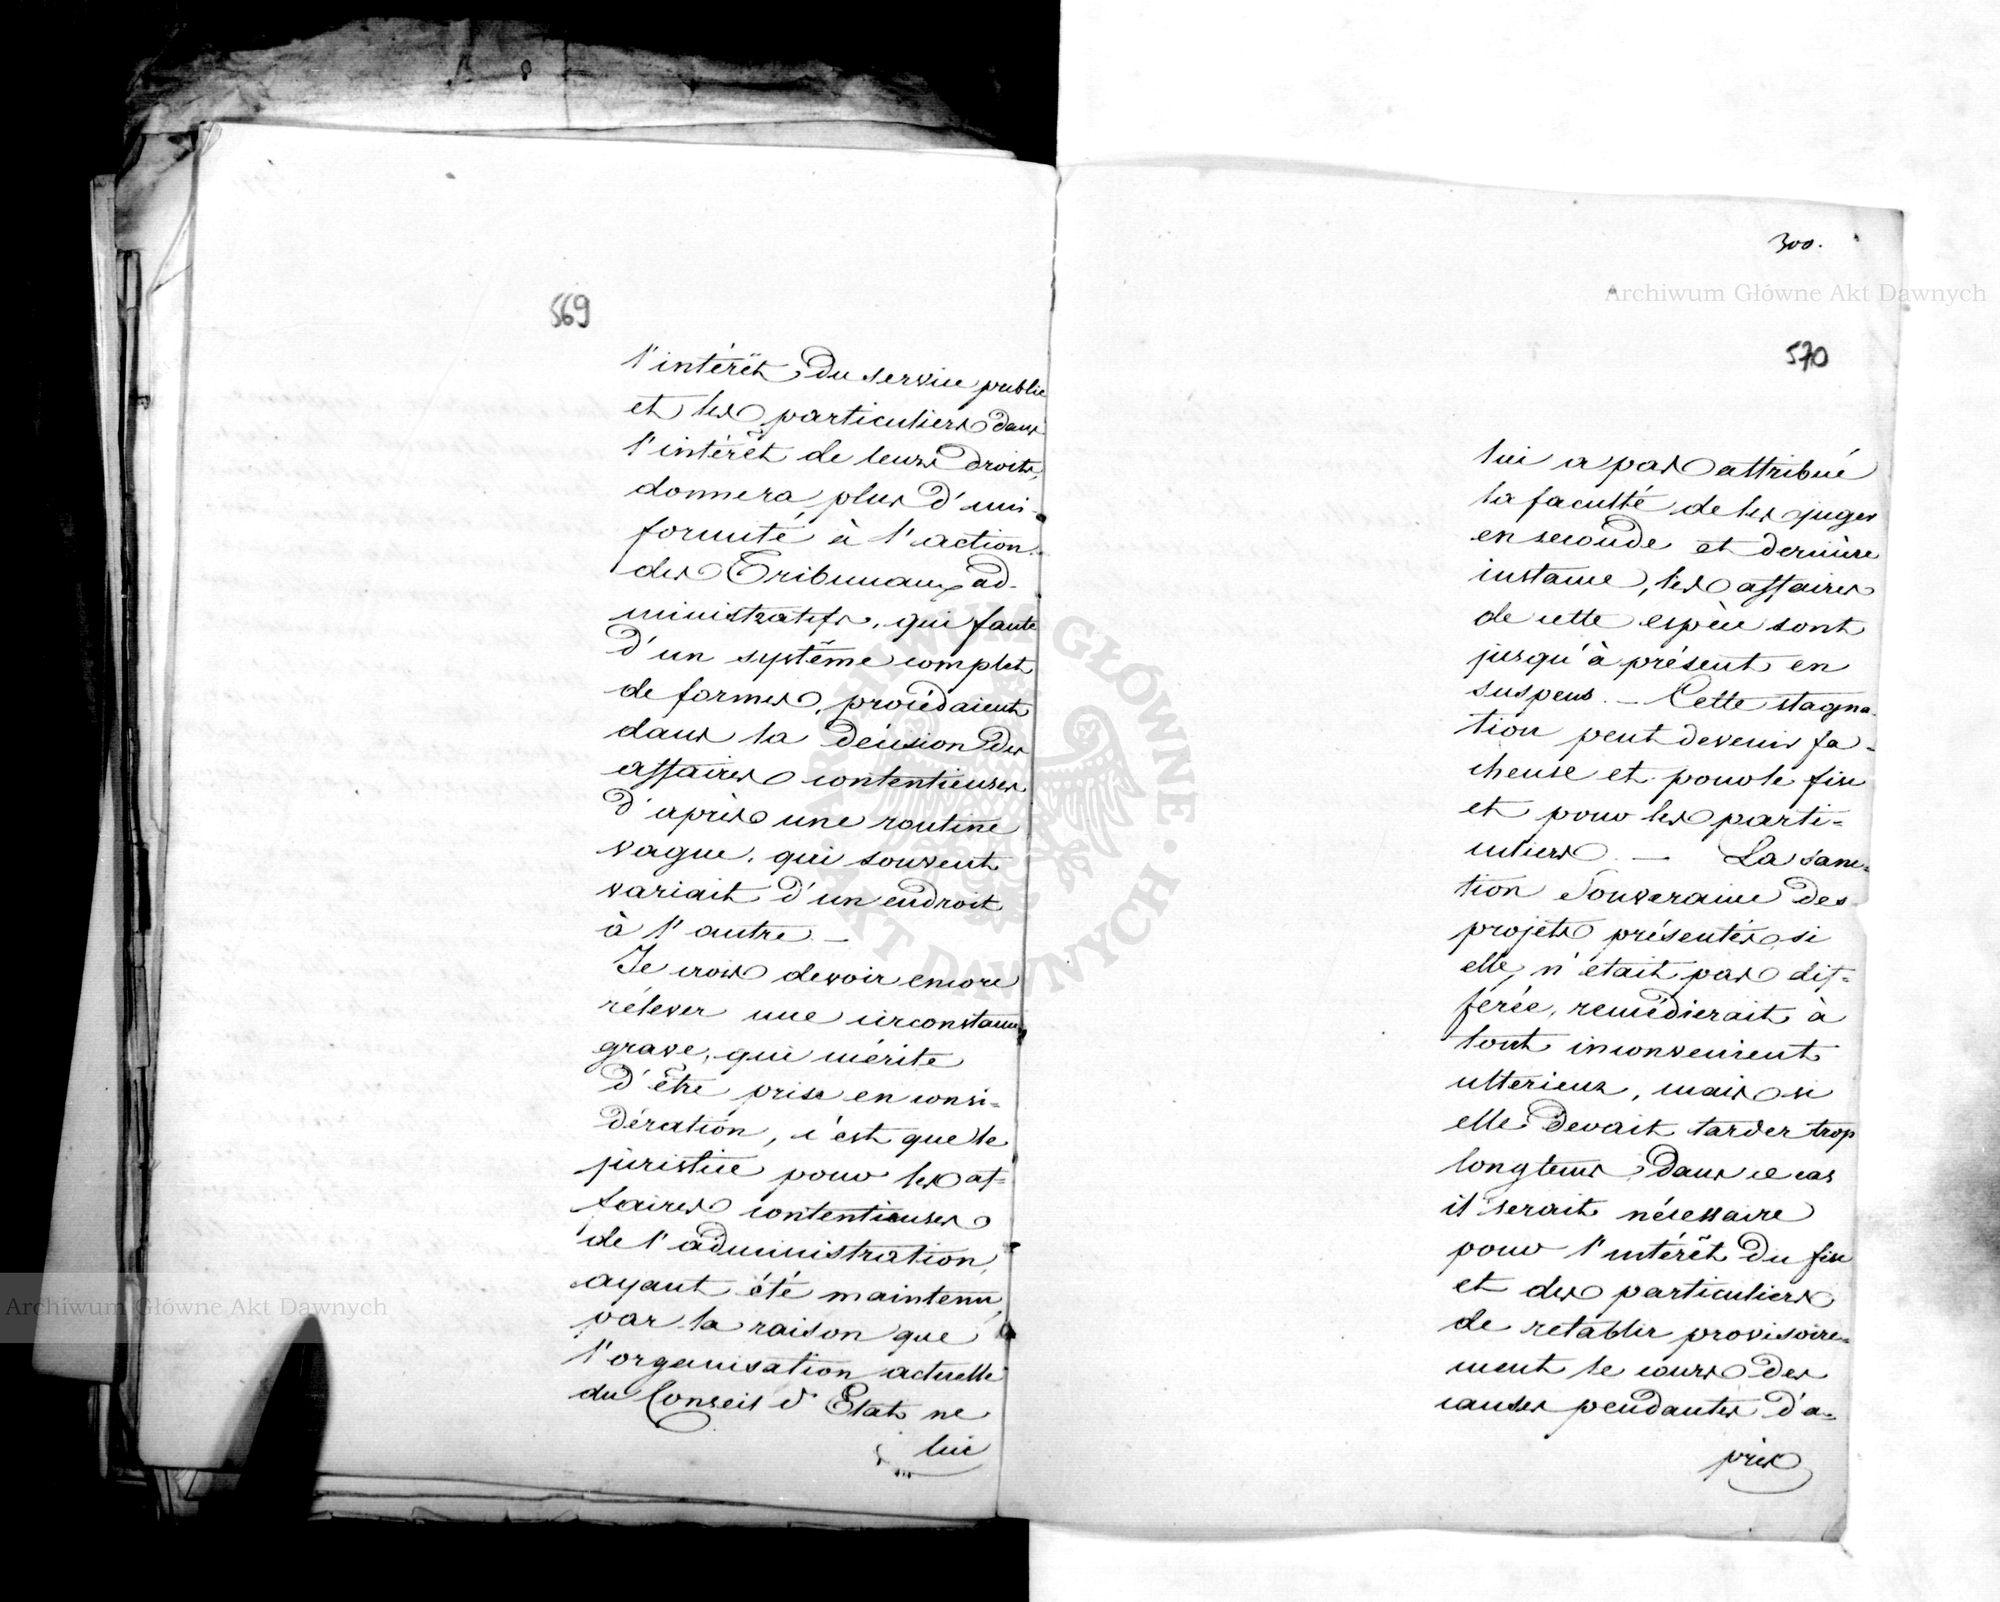 569
l'intérêt du service public
et les particuliers dans
l'intérêt de leurs droits,
donnera plus d'uni-
formité à l'action
des Tribunaux ad-
ministratifs, qui faute
d'un système complet
de formes, procédaient
dans la décision des
affaires contentieuses
d'après une routine
vague, qui souvent
variait d'un endroit
à l'autre. —
Je crois devoir encore
rélever une circonstance
grave, qui mérite
d'être prise en consi-
dération, c'est que le
juristice pour les af-
faires contentieuses
de l'administration,
ayant été maintenu
par la raison que
l'organisation actuelle
du Conseil d'Etat ne
lui
300.
570
lui a pas attribué
la faculté de les juger
en seconde et dernière
instance, les affaires
de cette espèce sont
jusqu'à présent en
suspens. — Cette stagna-
tion peut devenir fa-
cheuse et pour le fisc
et pour les parti-
culiers. — La sanc-
tion Souveraine des
projets présentés si
elle n'était pas dif-
férée, remédierait à
tout inconvenient
ulterieur, mais si
elle devait tarder trop
longtems, dans ce cas
il serait nécessaire
pour l'intérêt du fisc
et des particuliers
de retablir provisoire-
ment le cours des
causes pendantes d'a-
près
Archiwum Główne Akt Dawnych
Archiwum Główne Akt Dawnych
ARCHIWUM GŁÓWNE · AKT DAWNYCH ·